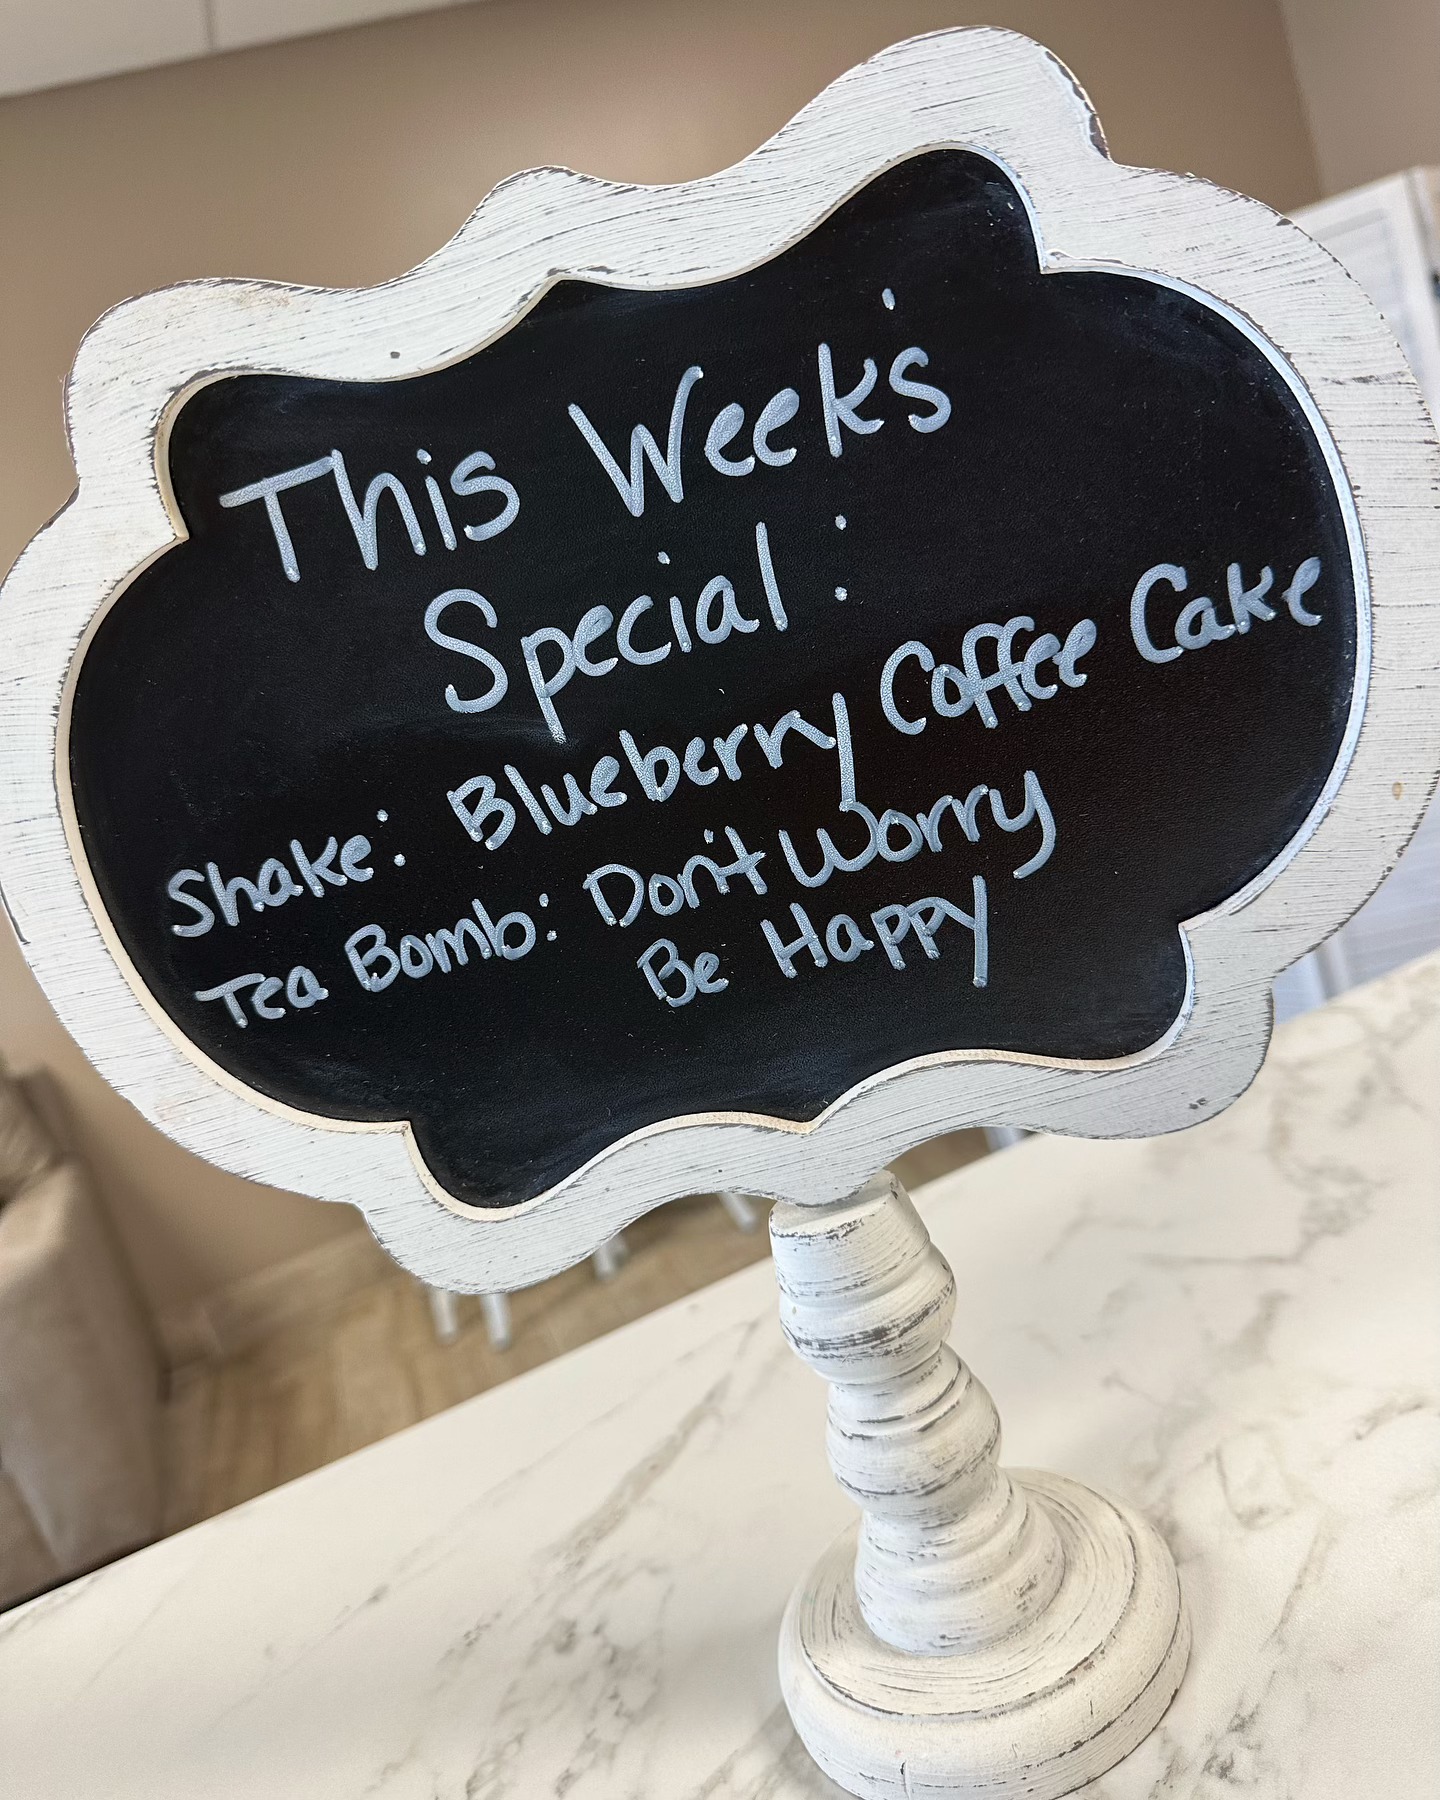 This Week's
Special:
Shake: Blueberry Coffee Cake
Tea Bomb: Don't Worry
Be Happy